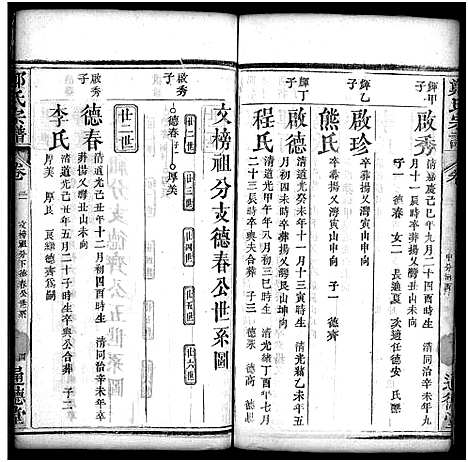 鄭氏宗譜
卷
輝甲
子
啟秀
清嘉慶己巳年九月二十四酉時生 清同治辛未年九
月十一辰時卒葬揚叉灣丑山未向
子 一 德春 女 二 長適 氏
次適任德安
輝乙
子
啟珍
卒葬揚叉灣寅山申向
熊氏
卒葬揚叉灣寅山申向 子 一 德齊
輝丁
子
啟德
清道光癸未年十一月十一子時生 清光緒乙未年五
月初四辰時卒葬揚叉灣艮山坤向
程氏
清道光甲申年八月初三巳時生 清光緒丁酉年七月
二十三辰時卒與夫合葬 子 一 德
通德堂
文榜祖分支德春公世系圖
廿二世
廿三世
廿四世
廿五世
廿六世
啟秀
子
德春
子二
厚美
廿二世
啟秀
子
德春
清道光己丑年十二月初四酉時生 清同治辛未年卒
葬揚叉灣丑山未向
李氏
清道光己丑年五月二十子時生卒與公合葬 子 二
厚美 厚長 長繼德齊為嗣
鄭氏宗譜
卷二
文榜祖分下德春公世系
四
通德堂